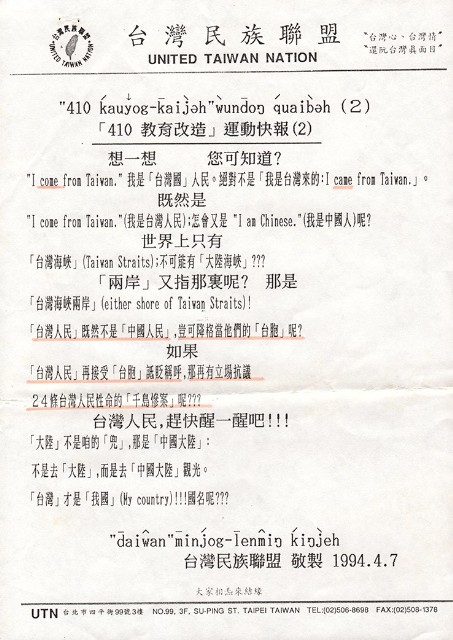 台灣民族聯盟
UNITED TAIWAN NATION
"台灣心、台灣情"
"還阮台灣真面目"
台灣民族聯盟
UNITED TAIWAN NATION
"410 kauyog-kaijəh"wundoŋ quaibəh (2)
「410 教育改造」運動快報(2)
想一想 您可知道?
"I come from Taiwan." 我是「台灣國」人民。絕對不是「我是台灣來的:I came from Taiwan.」。
既然是
"I come from Taiwan."(我是台灣人民);怎會又是 "I am Chinese."(我是中國人)呢?
世界上只有
「台灣海峽」(Taiwan Straits);不可能有「大陸海峽」???
「兩岸」又指那裏呢? 那是
「台灣海峽兩岸」(either shore of Taiwan Straits)!
「台灣人民」既然不是「中國人民」,豈可降格當他們的「台胞」呢?
如果
「台灣人民」再接受「台胞」詆貶稱呼,那再有立場抗議
24條台灣人民性命的「千島慘案」呢???
台灣人民,趕快醒一醒吧!!!
「大陸」不是咱的「兜」,那是「中國大陸」:
不是去「大陸」,而是去「中國大陸」觀光。
「台灣」才是「我國」(My country)!!!國名呢???
"daiwan"minjog-lenmiŋ kiŋjeh
台灣民族聯盟 敬製 1994.4.7
大家相招來結緣
UTN 台北市四平街99號3樓 NO.99, 3F, SU-PING ST. TAIPEI TAIWAN TEL:(02)506-8698 FAX:(02)508-1378